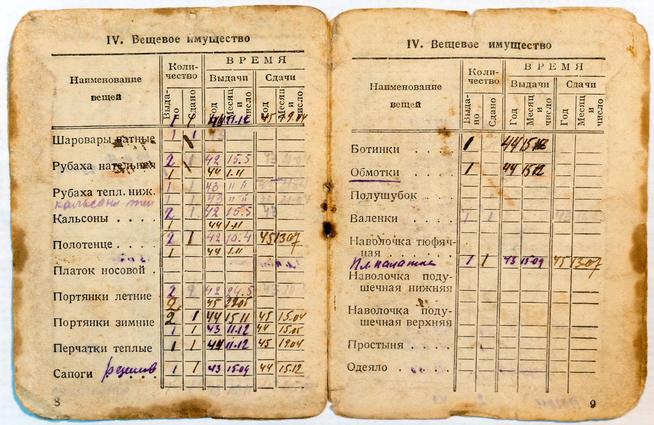 IV. Вещевое имущество
Наименование вещей
Коли-чество
ВРЕМЯ
Выдачи
Сдачи
Выда-но
Сдано
Год
Месяц и число
Год
Месяц и число
1 1 44 11.12 45 19.04
Шаровары ватные
1 1 43
Рубаха нательная
2 42 15.5
1 44 1.11
Рубаха тепл. ниж.
1 1 43
кальсоны
Кальсоны . . . .
2 42 15.5
1 44 1.11
Полотенце . . . .
2 1 42 10.4 45 13.07
1 44 1.11
Платок носовой .
Портянки летние
2 42 24.5
2 45 29.05
Портянки зимние
2 1 44 15.11 45 15.04
1 1 43 11.12 44 15.05
Перчатки теплые
1 1 44 11.12 45 19.04
Сапоги
1 1 43 15.09 44 15.12
8
IV. Вещевое имущество
Наименование вещей
Коли-чество
ВРЕМЯ
Выдачи
Сдачи
Выда-но
Сдано
Год
Месяц и число
Год
Месяц и число
Ботинки . . . .
1 44 15.12
Обмотки . . . .
1 44 15.12
Полушубок . . .
Валенки . . . .
1 1
Наволочка тюфяч-
ная . . . . . .
Пл. палатка
1 1 43 15.09 45 13.07
Наволочка поду-
шечная нижняя
Наволочка поду-
шечная верхняя
Простыня . . . .
Одеяло . . . . .
9